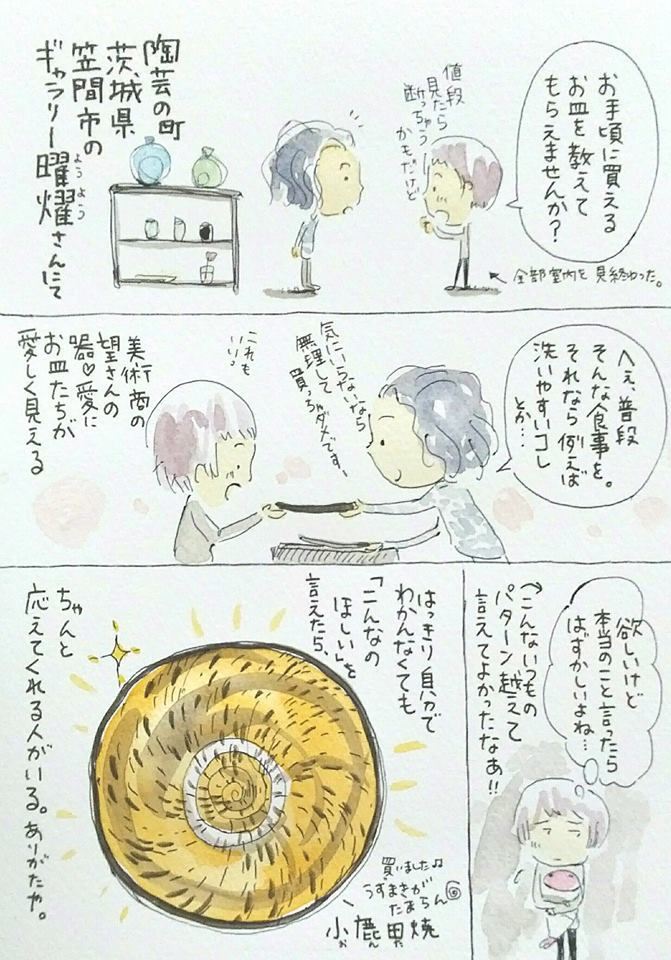 お手頃に買える
お皿を教えて
もらえませんか？
値段
見たら
断っちゃう
かもだけど
全部室内を見終わった。
陶芸の町
茨城県
笠間市の
ギャラリー曜燿さんにて
ようよう
へぇ、普段
そんな食事を。
それなら例えば
洗いやすいコレ
とか…
気にいらないなら
無理して
買っちゃダメです。
これも
いい。
美術商の
望さんの
器♡愛に
お皿たちが
愛しく見える
欲しいけど
本当のこと言ったら
はずかしいよね…
こんないつもの
パターン越えて
言えてよかったなぁ!!
はっきり自分で
わかんなくても
「こんなの
ほしい」を
言えたら、
ちゃんと
応えてくれる人がいる。ありがたや。
買いました♪
うずまきが
たまらん
小鹿田焼
おんた